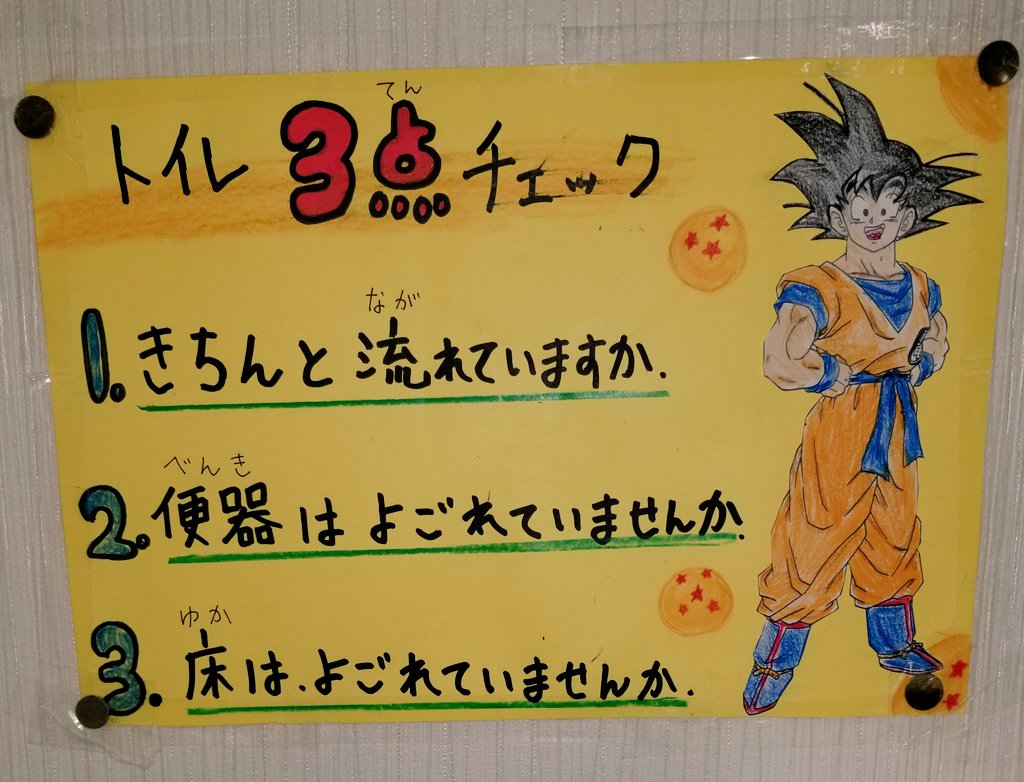 てん
トイレ 3点 チェック
なが
1. きちんと流れていますか.
べんき
2. 便器はよごれていませんか.
ゆか
3. 床は、よごれていませんか.